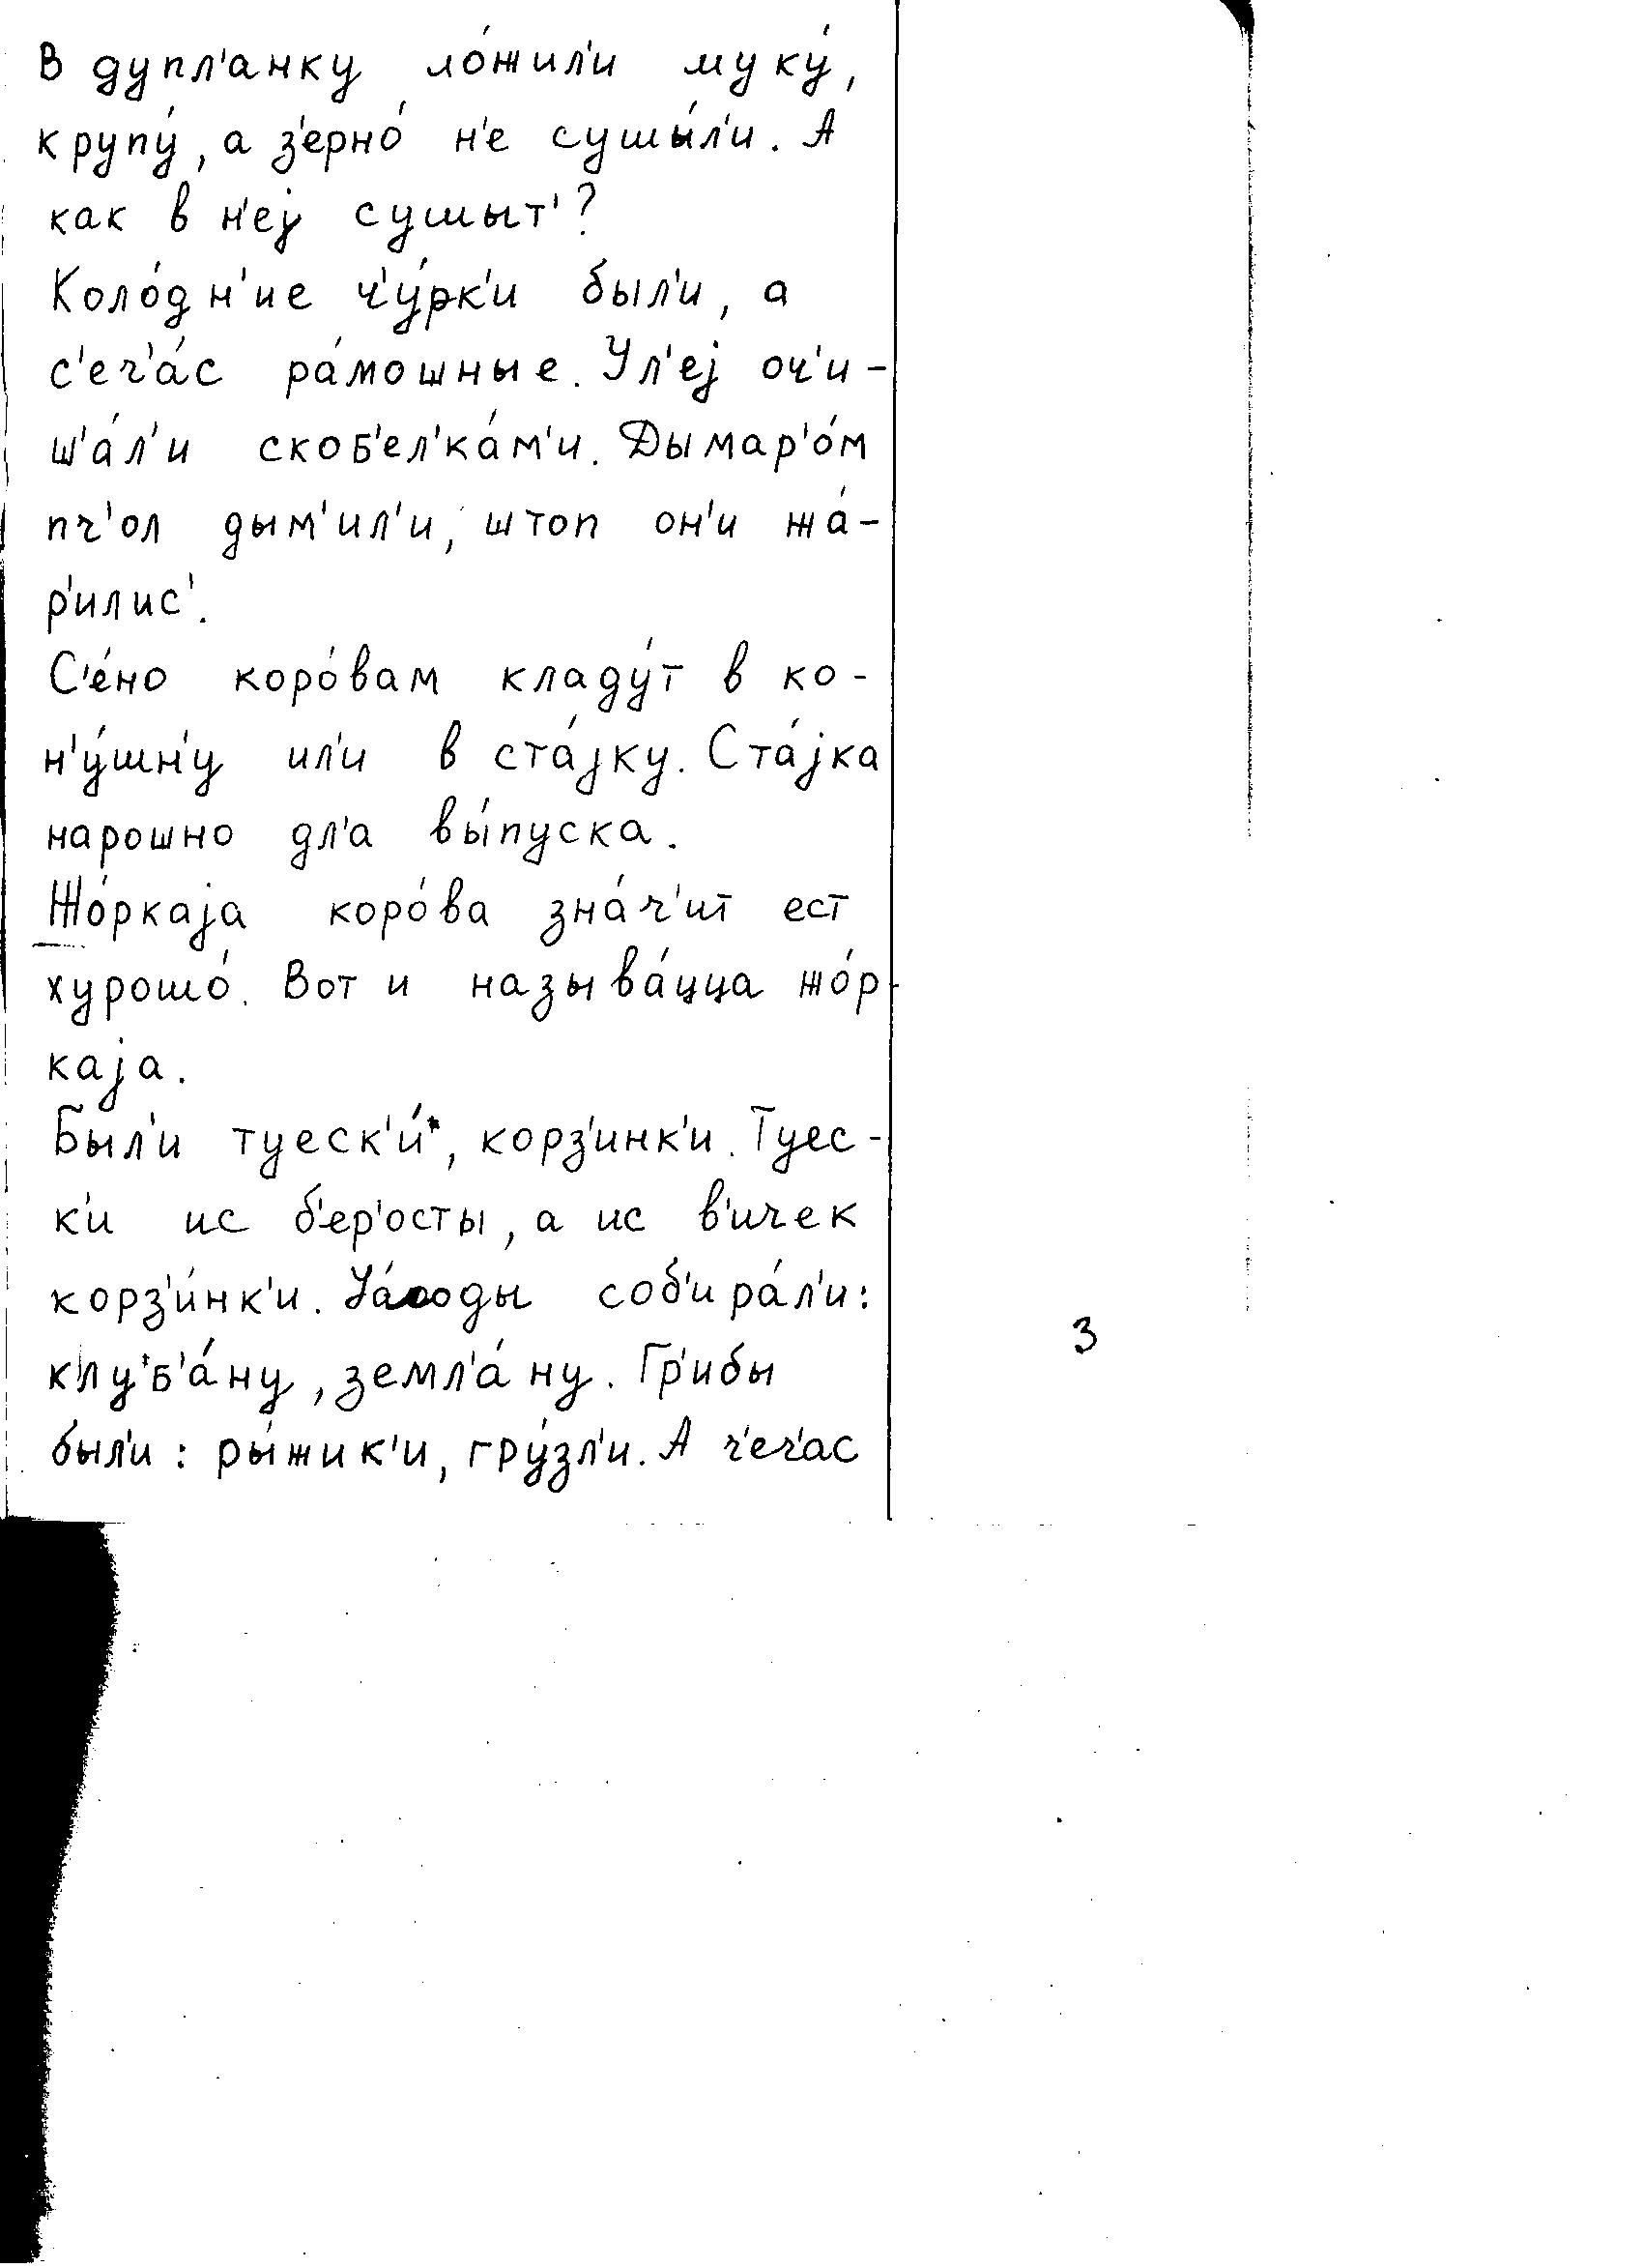 В дупл'анку ло́жил'и муку́,
крупу́, а з'ерно́ н'е сушы́л'и. А
как в н'еј сушыт'?
Коло́дн'ие ч'у́рк'и был'и, а
с'еч'а́с ра́мошные. Ул'еј оч'и-
ш'а́л'и скоб'ел'ка́м'и. Дымар'о́м
пч'ол дым'ил'и, штоп он'и жа́-
р'илис'.
С'е́но коро́вам кладу́т в ко-
н'у́шн'у ил'и в ста́јку. Ста́јка
нарошно дл'а вы́пуска.
Жо́ркаја коро́ва зна́ч'ит ест
хурошо́. Вот и называ́цца жо́р-
каја.
Был'и туеск'и́*, корз'инк'и. Туес-
к'и ис б'ер'осты, а ис в'ичек
корз'и́нк'и. соб'ира́л'и:
клуб'а́ну, земл'а́ну. Гр'ибы
был'и: ры́жик'и, гру́зл'и. А ч'еч'ас
3